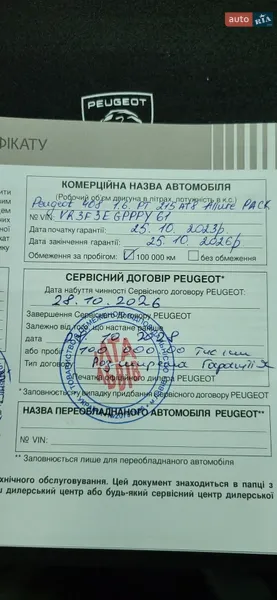 auto RIA
PEUGEOT
ФІКАТУ
КОМЕРЦІЙНА НАЗВА АВТОМОБІЛЯ
(Робочий об'єм двигуна в літрах, потужність в к.с.)
Peugeot 408 1.6 PT 215 AT8 Allure PACK
№ VIN: VR3F3EGPPPY61
Дата початку гарантії: 25.10.2023р.
Дата закінчення гарантії: 25.10.2026р
Обмеження за пробігом: 100 000 км без обмеження
СЕРВІСНИЙ ДОГОВІР PEUGEOT*
Дата набуття чинності Сервісного договору PEUGEOT:
28.10.2026
Завершення Сервісного Договору PEUGEOT
Залежно від того, що настане раніше
дата 10 2028
або пробіг
Тип договору Гарантія
Печатка офіційного дилера PEUGEOT
*Заповнюється у випадку придбання Сервісного договору PEUGEOT
НАЗВА ПЕРЕОБЛАДНАНОГО АВТОМОБІЛЯ PEUGEOT**
№ VIN:
** Заповнюється лише для переобладнаного автомобіля
хнічного обслуговування. Цей документ знаходиться в папці з
ш дилерський центр або будь-який сервісний центр дилерської